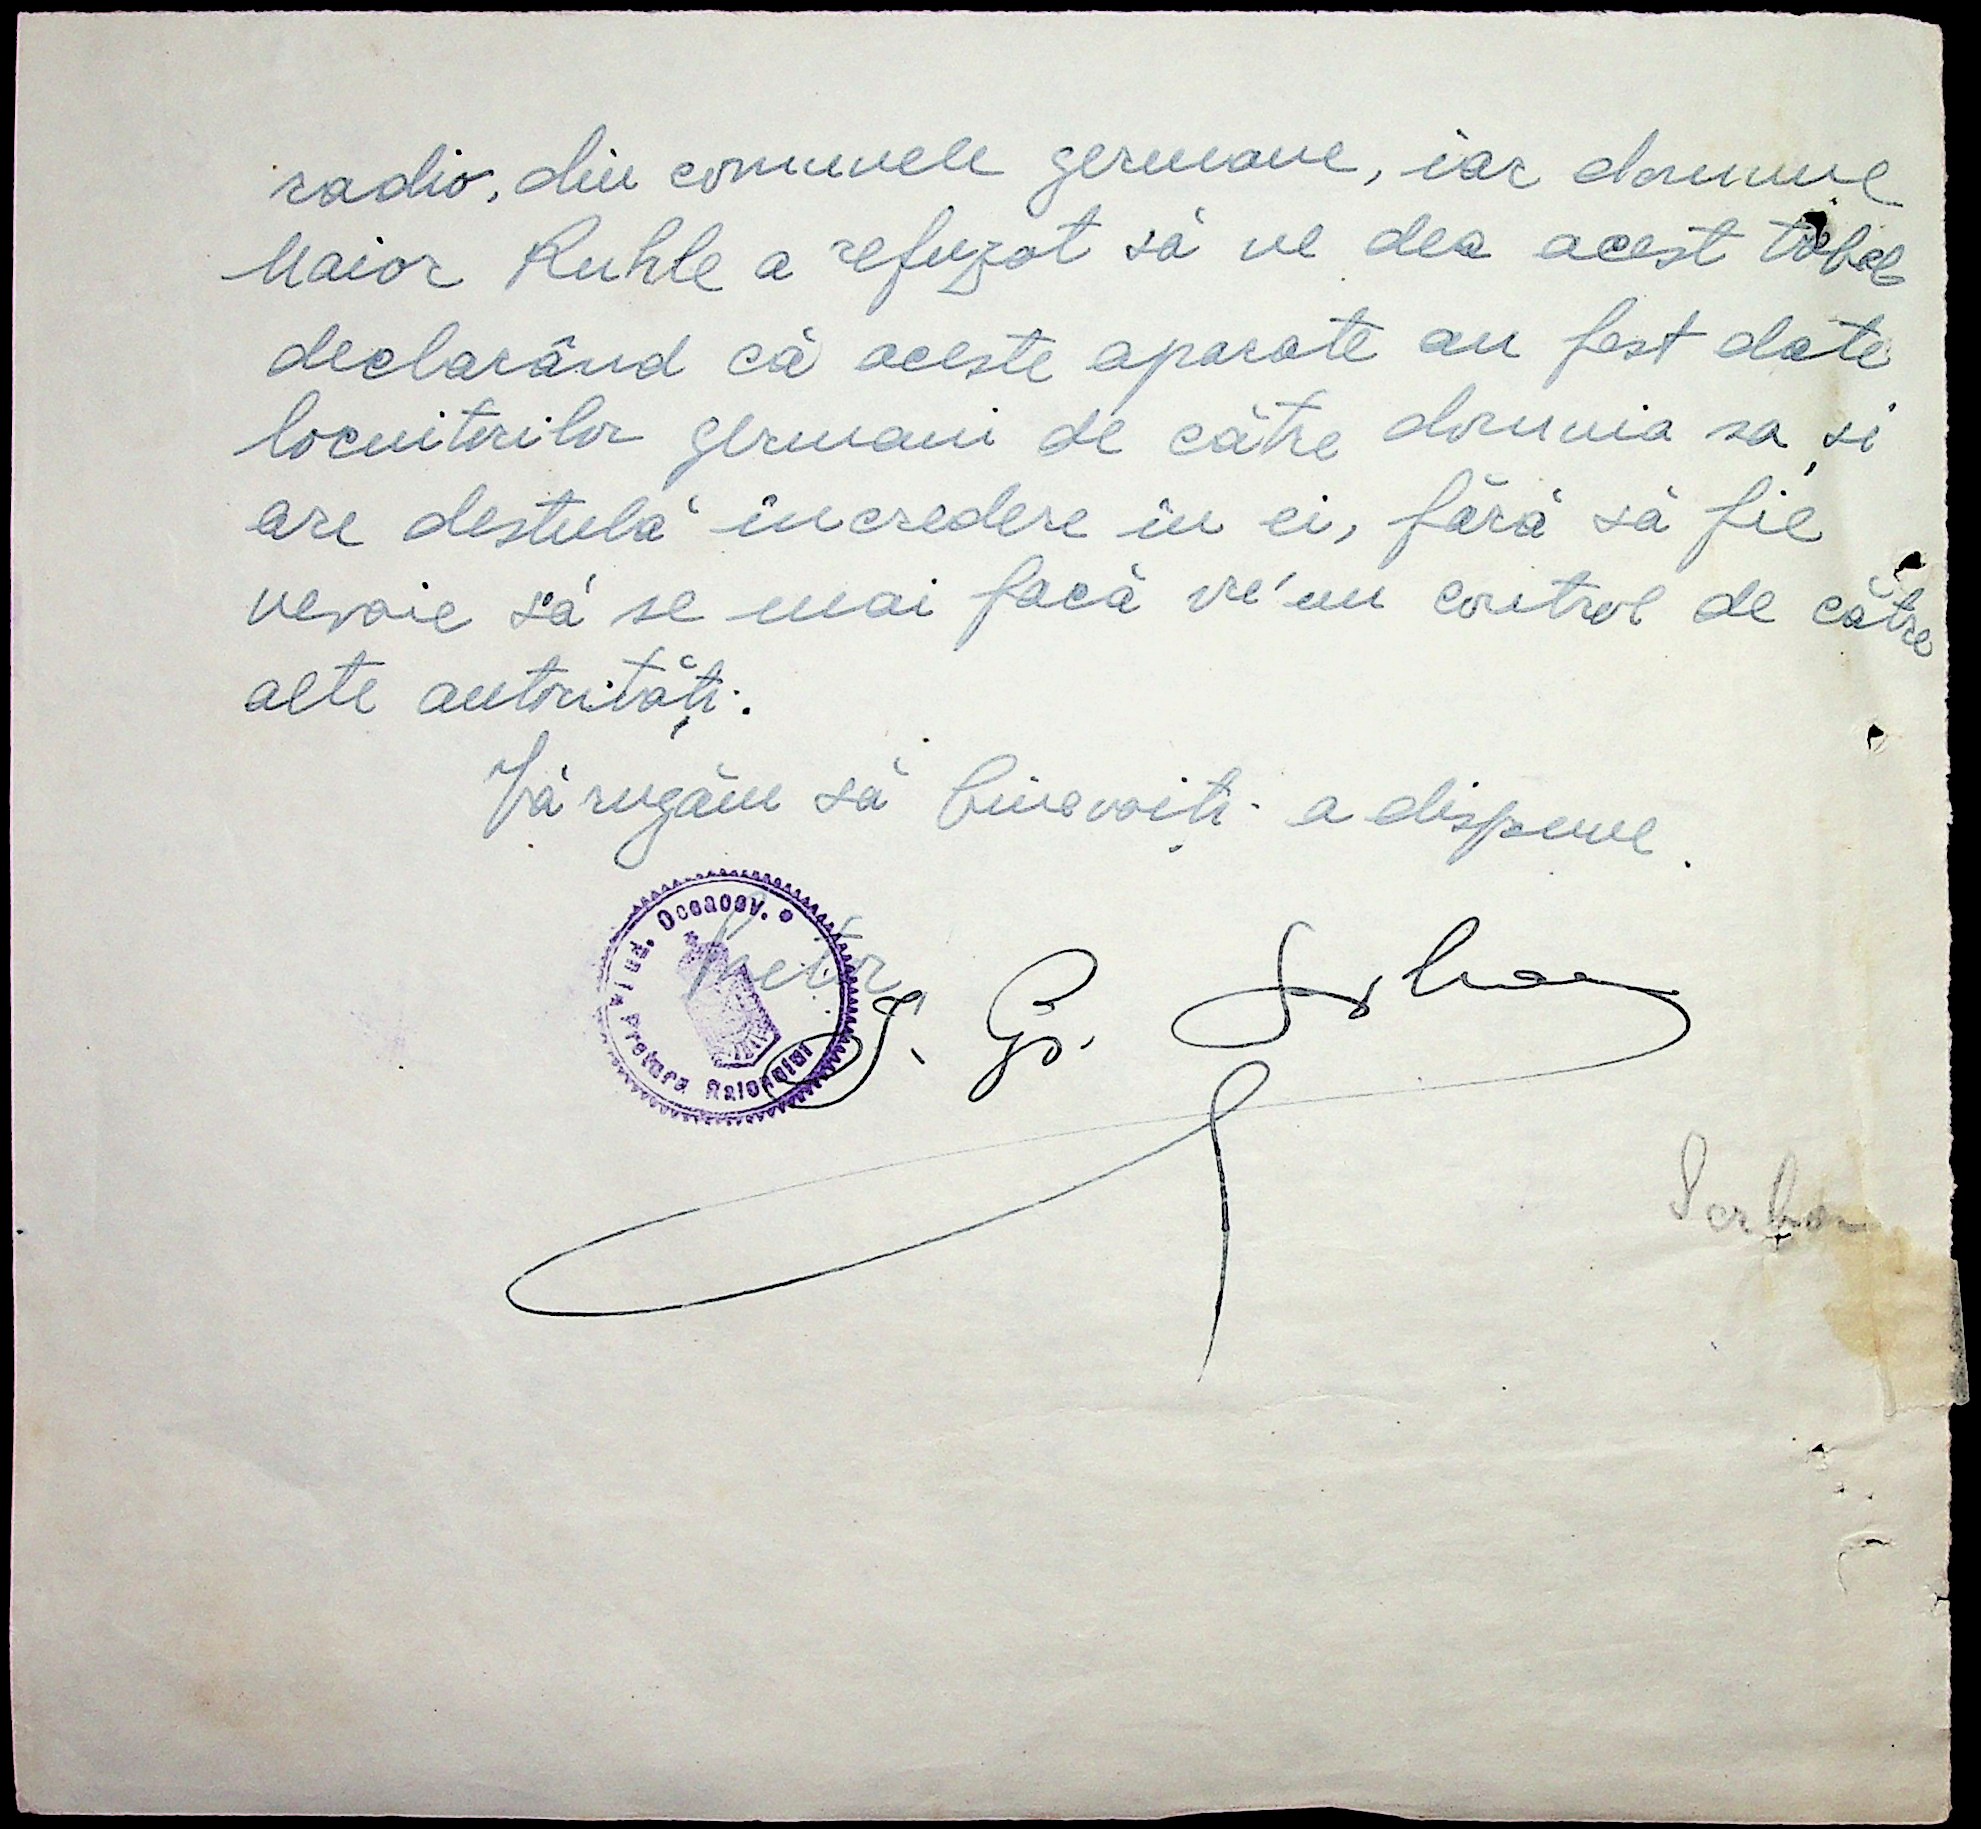 radio, din comunele germane, iar domnul
Maior Ruhle a refuzat să ne dea acest tabel
declarând că aceste aparate au fost date
locuitorilor germani de către domnia sa și
are destulă încredere în ei, fără să fie
nevoie să se mai facă vre'un control de către
alte autorități.
Vă rugăm să binevoiți a dispune.
Jud. Oceacov.
Pretor,
I. Gh. Serban
Pretura Raionului
Serban